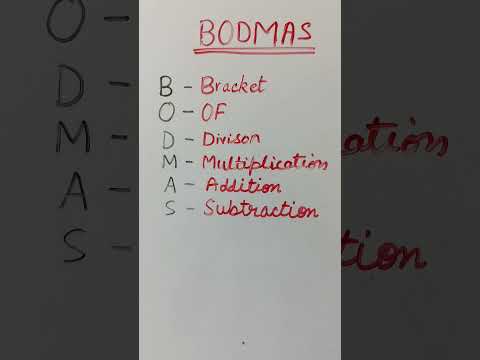 BODMAS
B - Bracket
O - OF
D - Divison
M - Multiplications
A - Addition
S - Subtraction